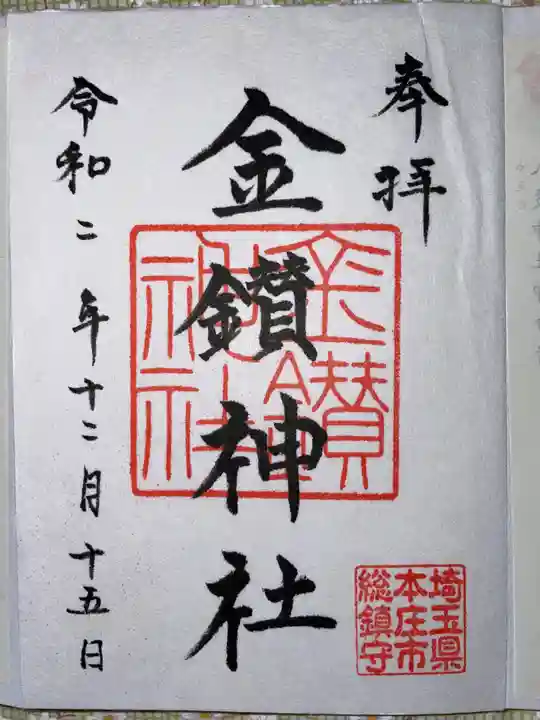 奉拝
金鑚神社
金鑚
神社
令和二年十二月十五日
埼玉県
本庄市
総鎮守